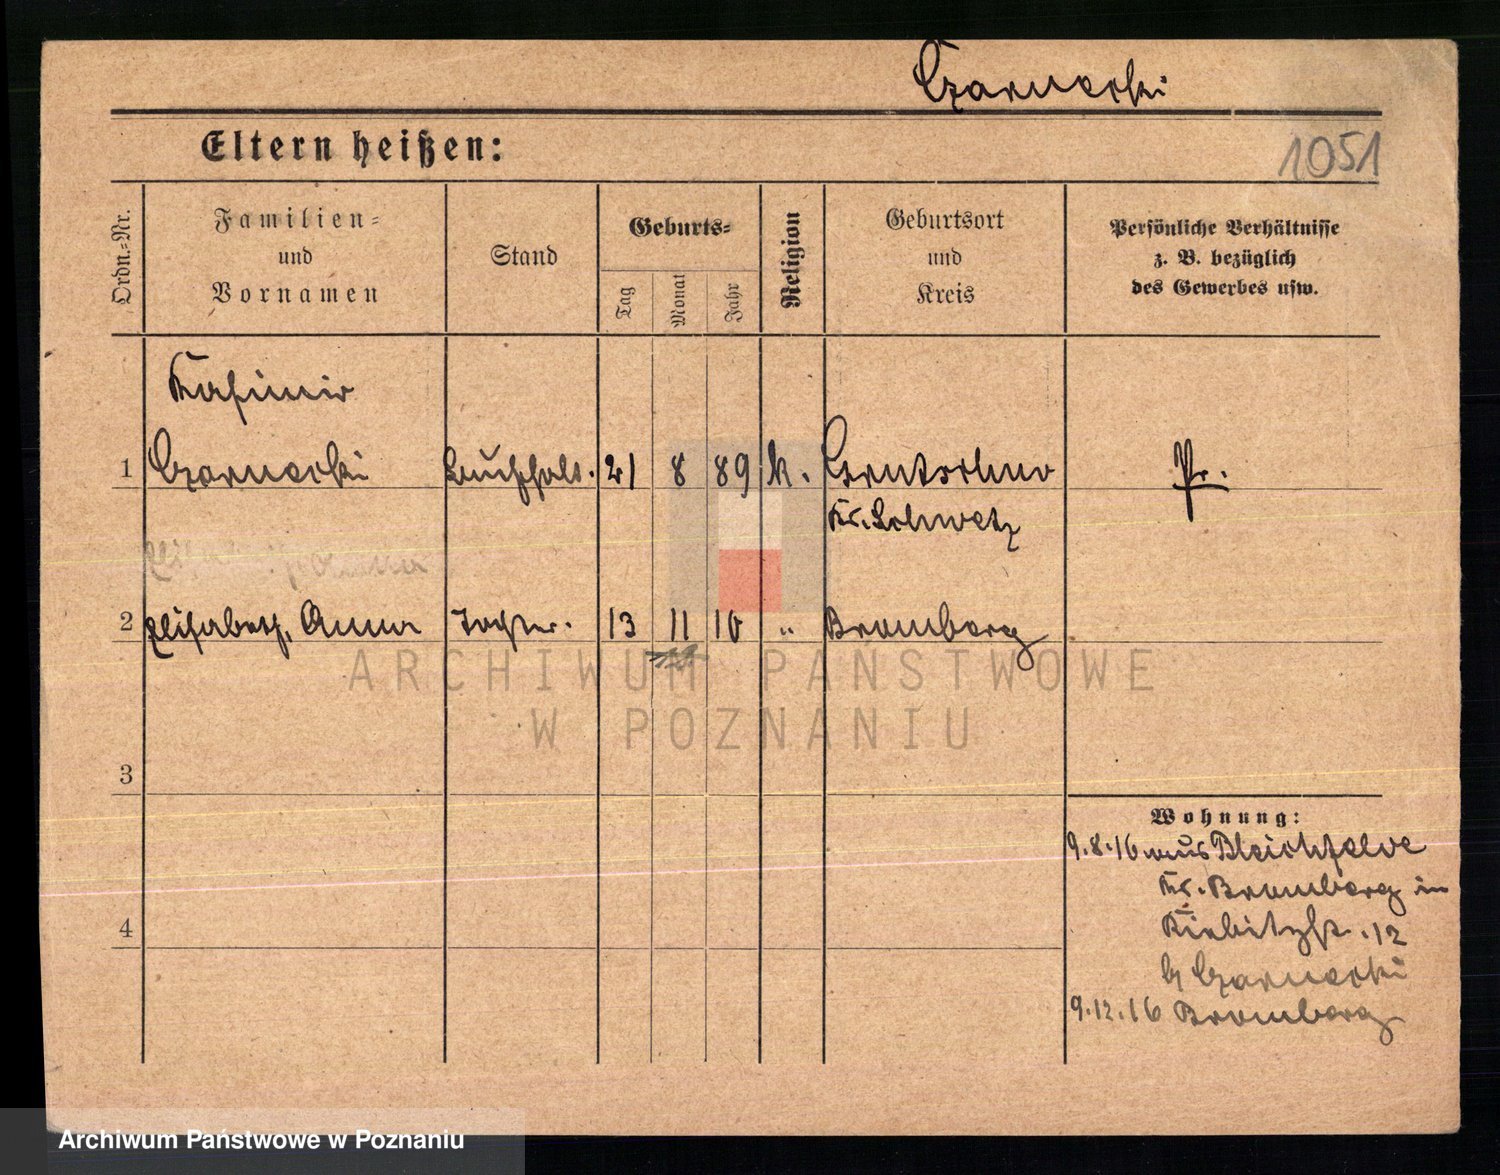 Czarnecki
Eltern heißen:
1051
Ordn.=Nr.
Familien=
und
Vornamen
Stand
Geburts=
Tag
Monat
Jahr
Religion
Geburtsort
und
Kreis
Persönliche Verhältnisse
z. B. bezüglich
des Gewerbes usw.
Kasimir
1 Czarnecki Buchhalt. 21 8 89 k. Grutschno Pr.
Kr. Schwetz
2 Elisabeth, Anna Tochter. 13 11 10 " Bromberg
ARCHIWUM PAŃSTWOWE
W POZNANIU
3
Wohnung:
9.8.16 aus Bleichfelde
Kr. Bromberg in
Kiebitzstr. 12
4
b Czarnecki
9.12.16 Bromberg
Archiwum Państwowe w Poznaniu